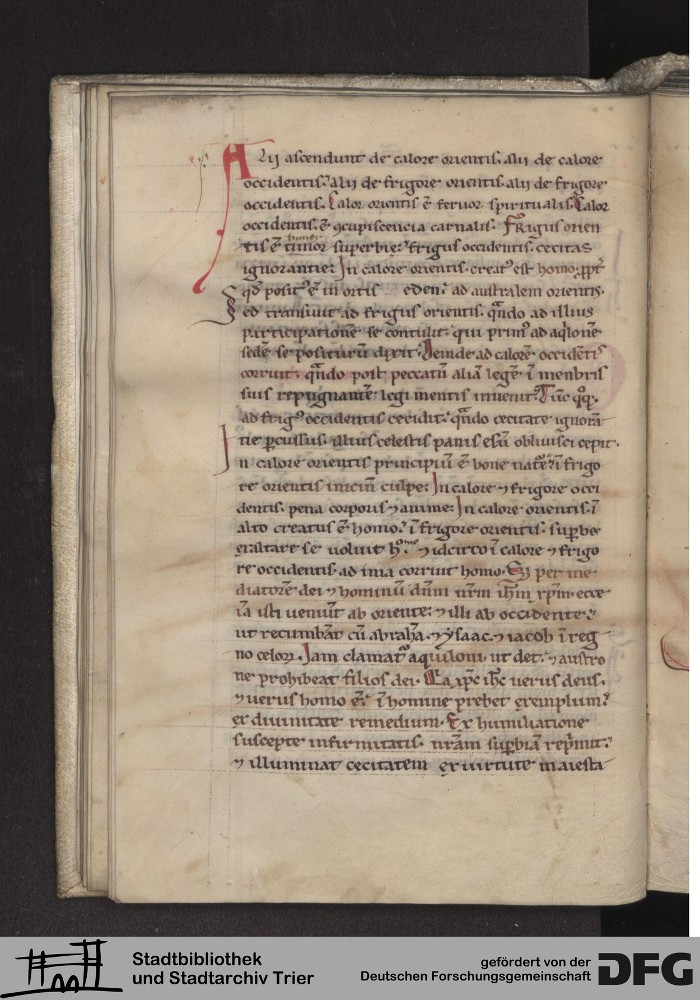 Alii ascendunt de calore orientis. alii de calore
occidentis. alii de frigore orientis. alii de frigore
occidentis. Calor orientis ē feruor spiritualis. Calor
occidentis. ē ꝯcupiscencia carnalis. Frigus orien
tis ē timor superbie. frigus occidentis. cecitas
ignorantie. In calore orientis. creatꝰ est homo. ꝓpt̓
qd̓ positꝰ ē in ortis eden. ad australem orientis.
Sed transiuit ad frigus orientis. qn̄do ad illius
participationē se contulit. qui primꝰ ad aq̓lonē
sedē se positurū dixit. Deinde ad calorē occidētis
corruit. qn̄do post peccatū aliā legē ī menbris
suis repugnantē legi mentis inuenit. Tūc qͦꝗ.
ad frigꝰ occidentis cecidit. qn̄do cecitate ignorā
tie ꝑcussus. illius celestis panis esū obliuisci cepit.
In calore orientis principiū ē bone nat̄e. ī frigo
re orientis iniciū culpe. In calore ⁊ frigore occi
dentis. pena corporis ⁊ anime. In calore orientis. ī
alto creatus ē homo. ī frigore orientis. suꝑbe
exaltare se uoluit ⁊ idcirco ī calore ⁊ frigo
re occidentis. ad ima corruit homo. Sꝫ per me
diatorē dei ⁊ hominū dn̄m nr̄m ih̄m xp̄m. ecce
iā isti ueniūt ab oriente. ⁊ illi ab occidente.
ut recumbāt cū abrahā. ⁊ ysaac. ⁊ iacob ī reg
no celoꝝ. Iam clamatᷣ aquiloni. ut det. ⁊ austro
ne prohibeat filios dei. Qa xp̄c ih̄c uerus deus.
⁊ uerus homo ē. ī homine prebet exemplum.
ex diuinitate remedium. Ex humiliatione
suscepte infirmitatis. nr̄am suꝑbiā rep̓mit.
⁊ illuminat cecitatem ex uirtute maiesta
Stadtbibliothek
und Stadtarchiv Trier
gefördert von der
Deutschen Forschungsgemeinschaft
DFG